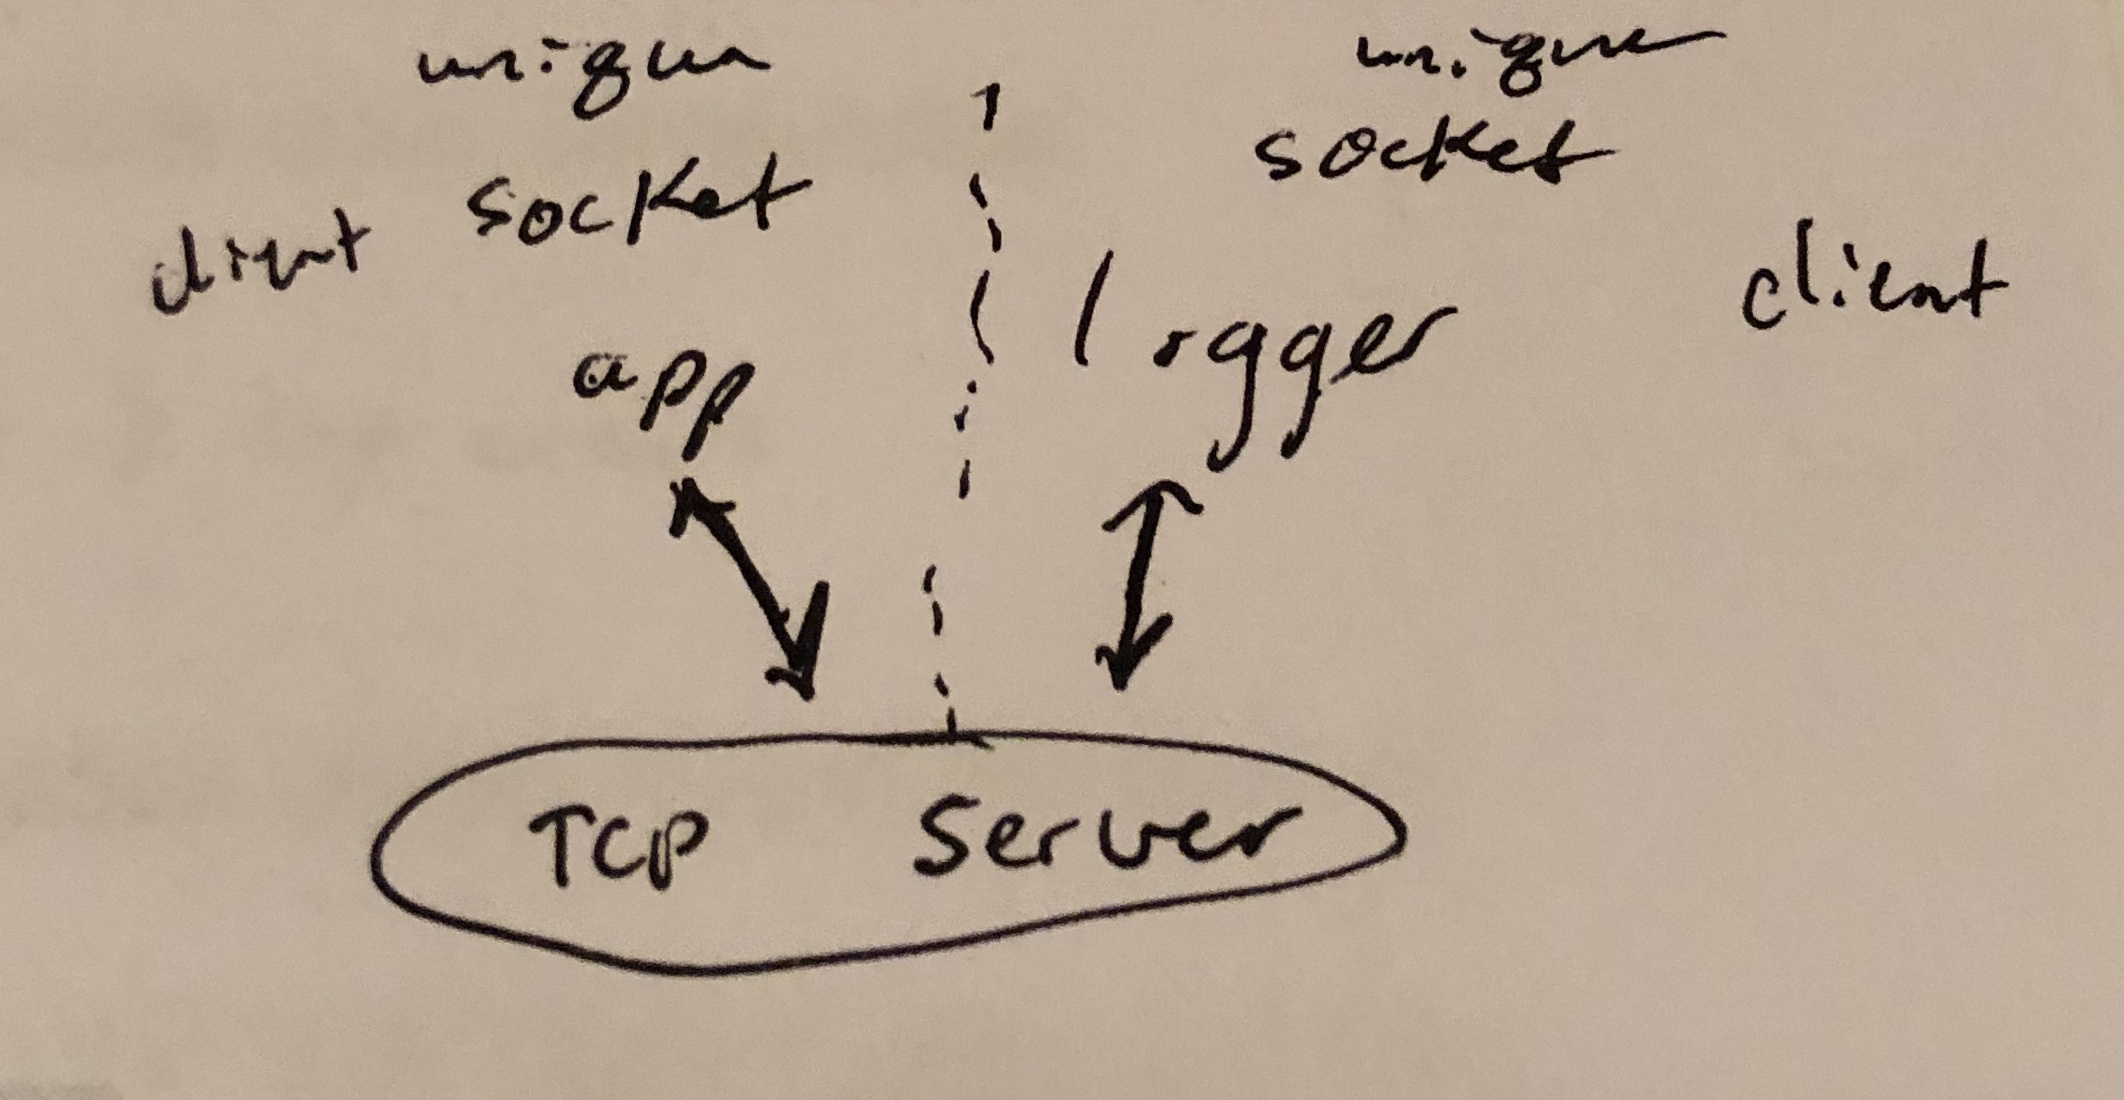 unique
socket
client
app
unique
socket
logger
client
TCP Server